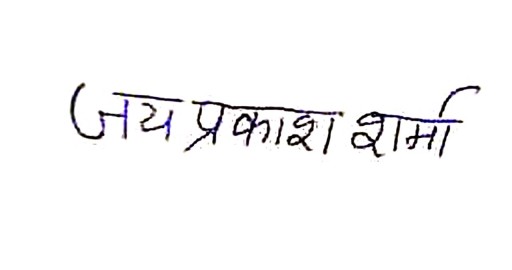 जय प्रकाश शर्मा